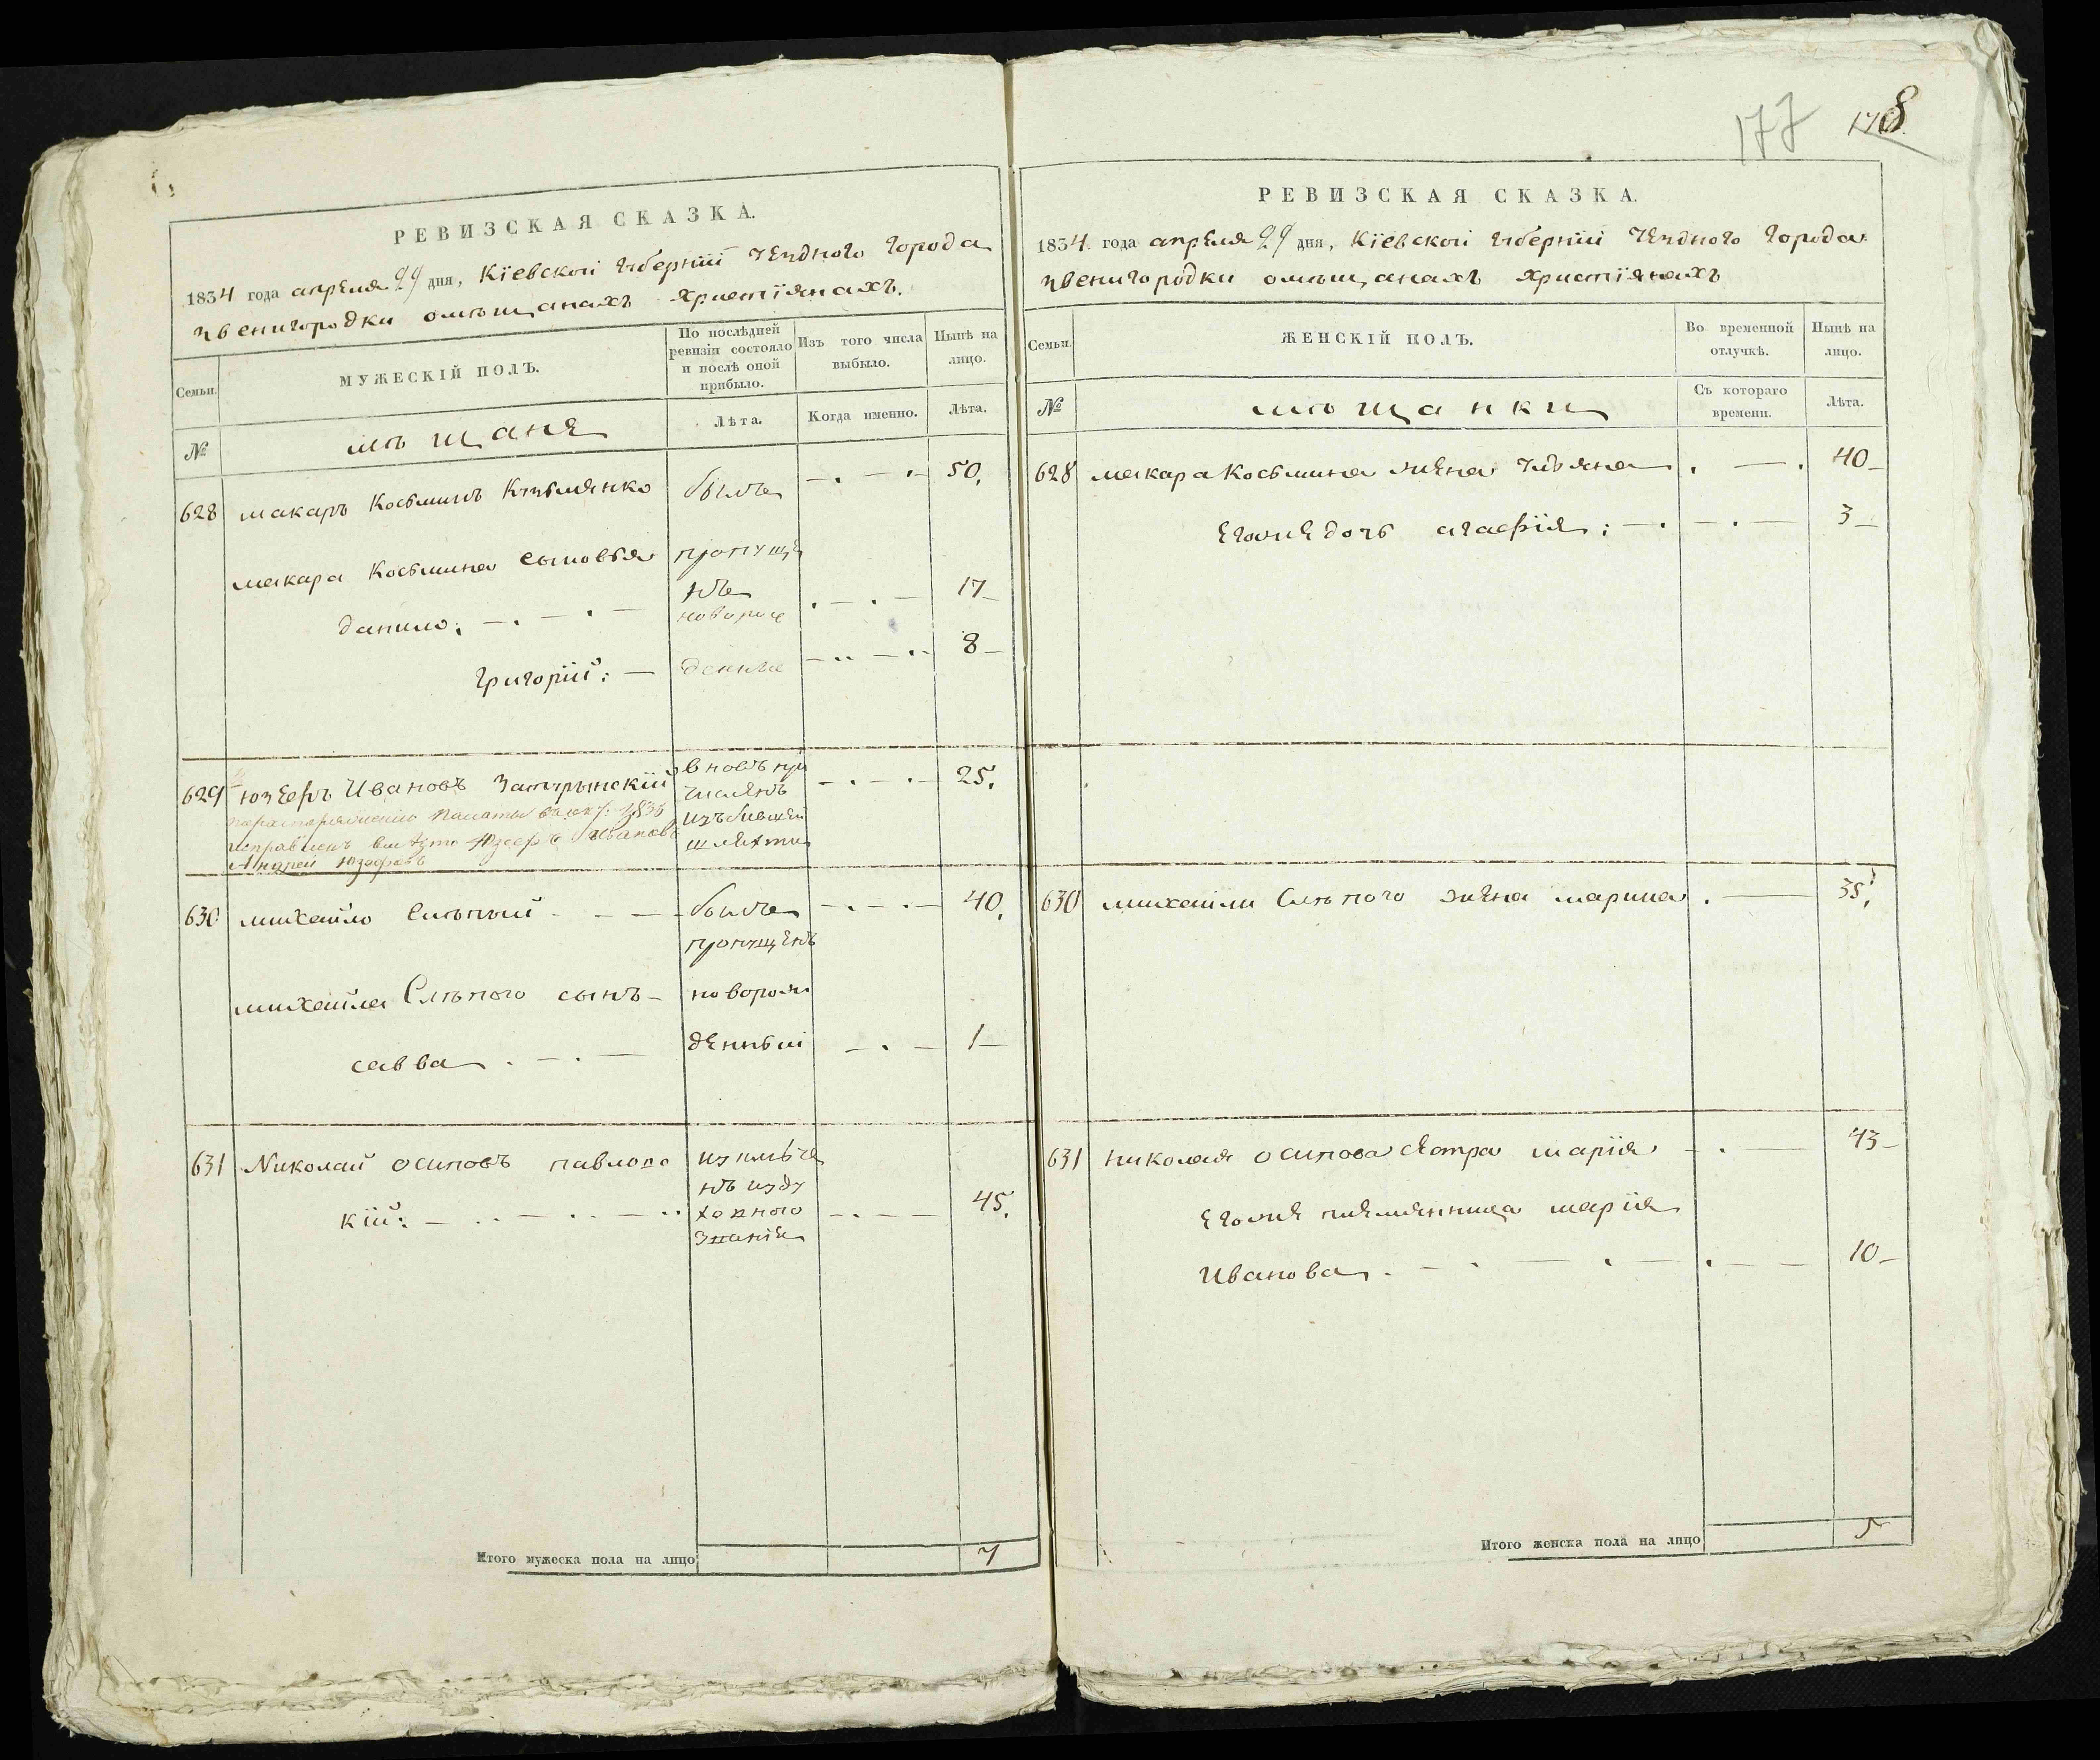 РЕВИЗСКАЯ СКАЗКА.
1834 года апреля 29 дня, Кіевской губерніи уезднаго города
звенигородки омѣщанахъ христіянахъ.
Семьи.
МУЖЕСКІЙ ПОЛЪ.
По послѣдней ревизіи состояло и послѣ оной прибыло.
Изъ того числа выбыло.
Нынѣ на лицо.
№
мѣщане
Лѣта.
Когда именно.
Лѣта.
628 макаръ Косьминъ Кузьменко былъ 50.
макара Косьмина сыновья пропуще
нъ
данило. 17
новорож
григорій: денные 8
629 юзефъ Ивановъ вновь при 25.
численъ
исправленъ вместо Юзефъ Ивановъ изъ бывшей
Андрей Юзефовъ шляхты
630 михайло слѣпый былъ 40.
пропущенъ
михайла Слѣпого сынъ новорож
савва денный 1
631 Николай осиповъ павловс
кій: нъ изду 45.
ховного
званія
Итого мужеска пола на лицо 7
177 178
РЕВИЗСКАЯ СКАЗКА.
1834. года апреля 29 дня, Кіевской губерніи уезднаго города
звенигородки омѣщанахъ христіянахъ
Семьи.
ЖЕНСКІЙ ПОЛЪ.
Во временной отлучкѣ.
Нынѣ на лицо.
№
мѣщанки
Съ котораго времени.
Лѣта.
628 макара Косьмина жена ульяна 40
егоже дочь агафія: 3
630 михайли Слѣпого жена марина 35.
631 николая осипова сестра марія 43
егоже племянница марія
Иванова 10
Итого женска пола на лицо 5